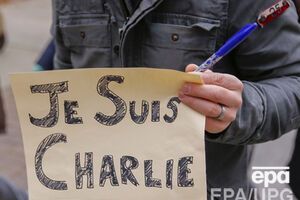 JE SUIS
CHARLIE
epa
EPA/UPG